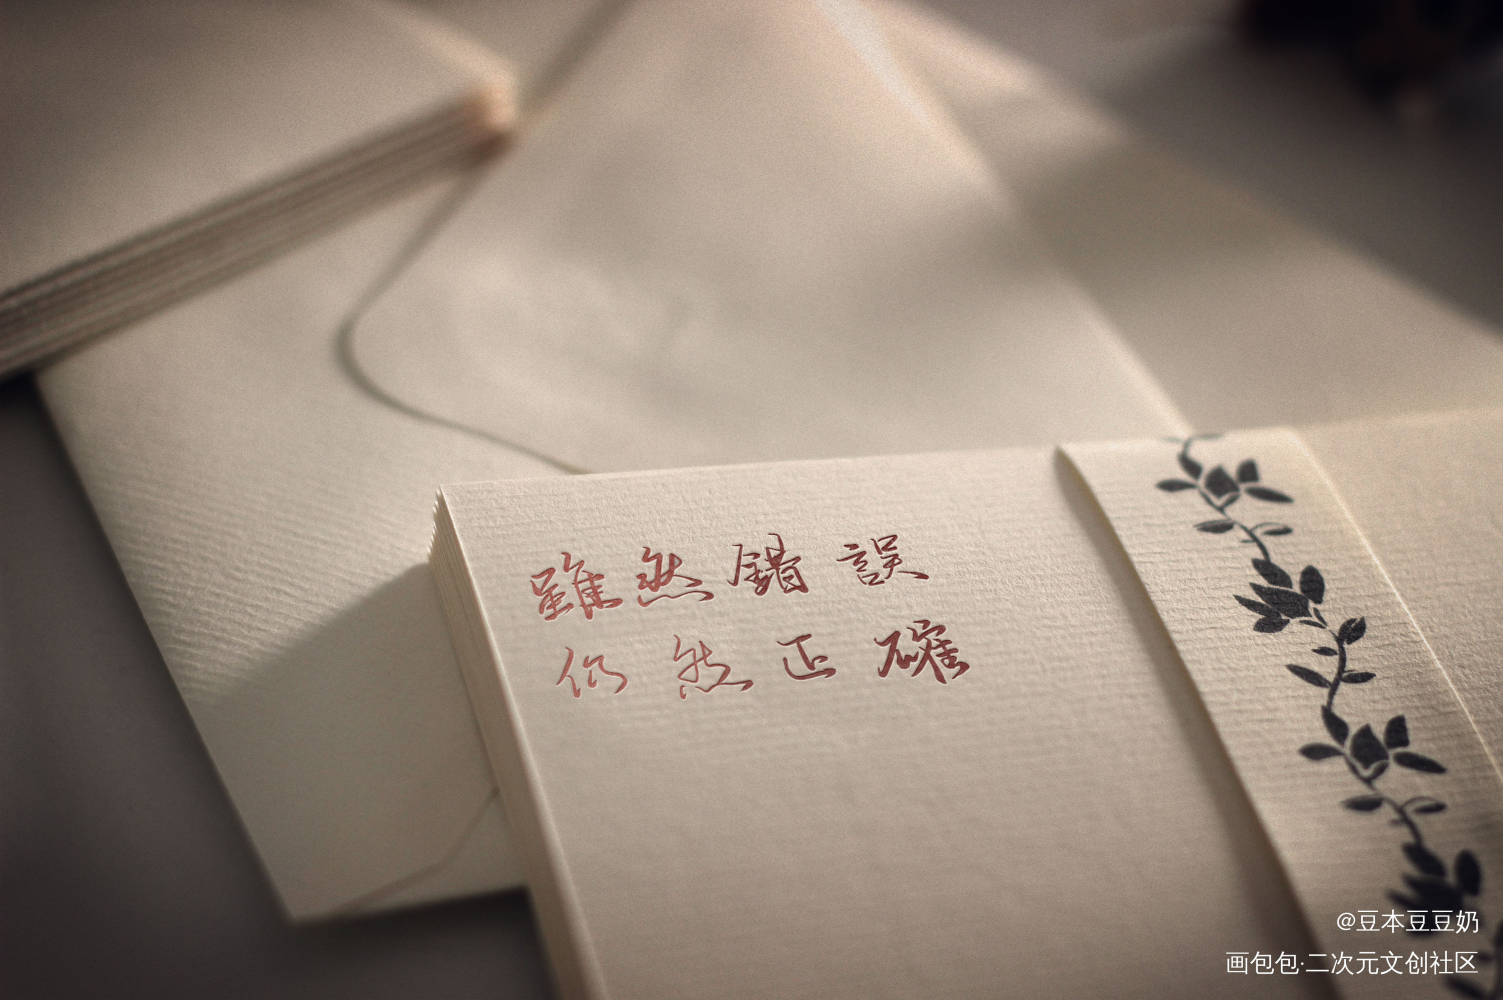 雖然錯誤
仍然正確
@豆本豆豆奶
画包包·二次元文创社区